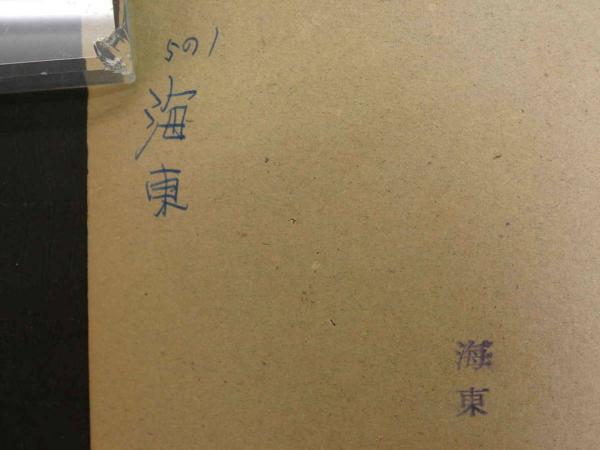 5の1
海東
海東